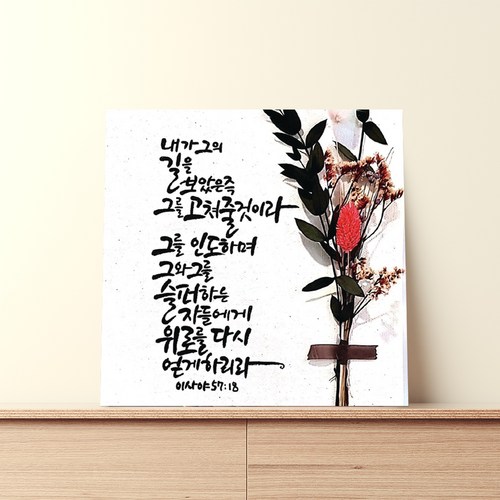 내가 그의
길을
보았은즉
그를 고쳐줄것이라
그를 인도하며
그와 그를
슬퍼하는
자들에게
위로를 다시
얻게하리라
이사야 57:18